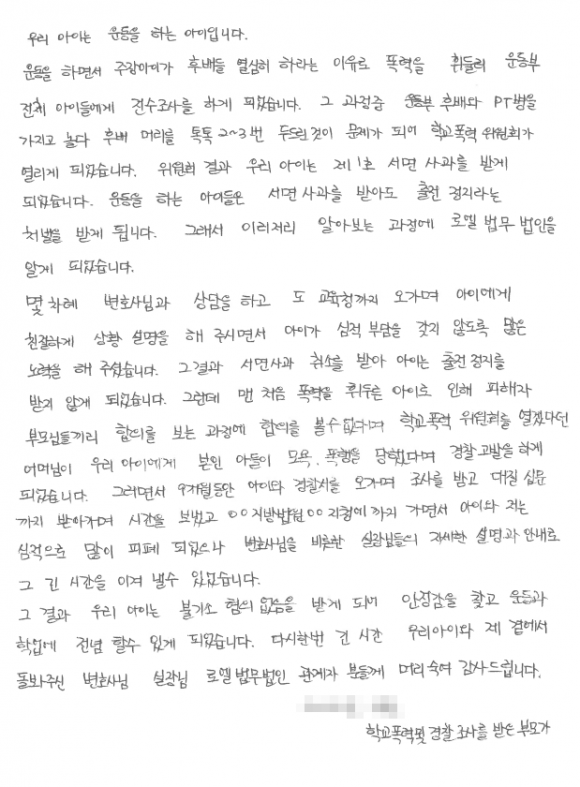 우리 아이는 운동을 하는 아이입니다.
운동을 하면서 주장아이가 후배들 열심히 하라는 이유로 폭력을 휘둘러 운동부
전체 아이들에게 전수조사를 하게 되었습니다. 그 과정중 운동부 후배와 PT병을
가지고 놀다 후배 머리를 톡톡 2~3번 두드린것이 문제가 되어 학교폭력 위원회가
열리게 되었습니다. 위원회 결과 우리 아이는 제1호 서면 사과를 받게
되었습니다. 운동을 하는 아이들은 서면사과를 받아도 출전 정지라는
처벌을 받게 됩니다. 그래서 이리저리 알아보는 과정에 로엘 법무 법인을
알게 되었습니다.
몇 차례 변호사님과 상담을 하고 또 교육청까지 오가며 아이에게
친절하게 상황 설명을 해 주시면서 아이가 심적 부담을 갖지 않도록 많은
노력을 해 주셨습니다. 그결과 서면사과 취소를 받아 아이는 출전정지를
받지 않게 되었습니다. 그런데 맨 처음 폭력을 휘두른 아이로 인해 피해자
부모님들끼리 합의를 보는 과정에 합의를 볼수없다며 학교폭력 위원회를 열겠다던
어머님이 우리 아이에게 본인 아들이 모욕, 폭행을 당했다며 경찰 고발을 하게
되었습니다. 그러면서 9개월동안 아이와 경찰서를 오가며 조사를 받고 대질 심문
까지 받아가며 시간을 보냈고 ○○지방법원○○지청에까지 가면서 아이와 저는
심적으로 많이 피폐 되었으나 변호사님을 비롯한 실장님들의 자세한 설명과 안내로
그 긴 시간을 이겨 낼수 있었습니다.
그 결과 우리 아이는 불기소 혐의 없음을 받게 되어 안정감을 찾고 운동과
학업에 전념 할수 있게 되었습니다. 다시한번 긴 시간 우리아이와 제 곁에서
돌봐주신 변호사님 실장님 로엘법무법인 관계자 분들께 머리숙여 감사드립니다.
학교폭력및 경찰 조사를 받은 부모가